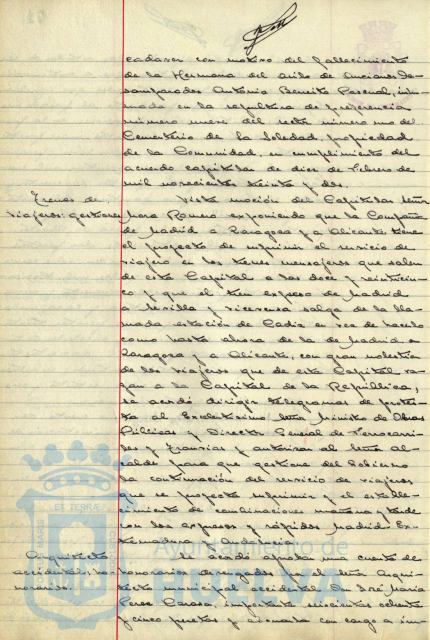 cadaver con motivo del fallecimiento
de la Hermana del asilo de Ancianos De-
samparados Antonia Benito Pascual, inhu-
mada en la sepultura de preferencia
número nueve del recto número uno del
Cementerio de la Soledad, propiedad
de la Comunidad, en cumplimiento del
acuerdo capitular de diez de Febrero de
mil novecientos treinta y dos.
Trenes de
viajeros: gestiones
Vista moción del Capitular señor
Mora Romero exponiendo que la Compañía
de Madrid a Zaragoza y a Alicante tiene
el proyecto de suprimir el servicio de
viajeros en los trenes mensajeros que salen
de esta Capital a las doce y veinticin-
co y que el tren expreso de Madrid
a Sevilla y viceversa salga de la lla-
mada estación de Cadiz en vez de hacerlo
como hasta ahora de la de Madrid a
Zaragoza y a Alicante, con gran molestia
de los viajeros que de esta Capital va-
yan a la Capital de la República,
se acordó dirigir telegramas de protes-
ta al Excelentísimo señor Ministro de Obras
Públicas y Director General de Ferrocarri-
les y Tranvías y autorizar al señor al-
calde para que gestione del Gobierno
la continuación del servicio de viajeros
que se proyecta suprimir y el estable-
cimiento de combinaciones mañana y tarde
con los expresos y rápidos Madrid Ex-
tremadura y Andalucía.
Arquitecto
accidental: ho-
norarios.
Se acordó aprobar una cuenta de
honorarios devengados por el señor Arqui-
tecto municipal accidental Don José María
Perez Carasa, importante seiscientas ochenta
y cinco pesetas y abonada con cargo a im-
Ayuntamiento de
HUELVA